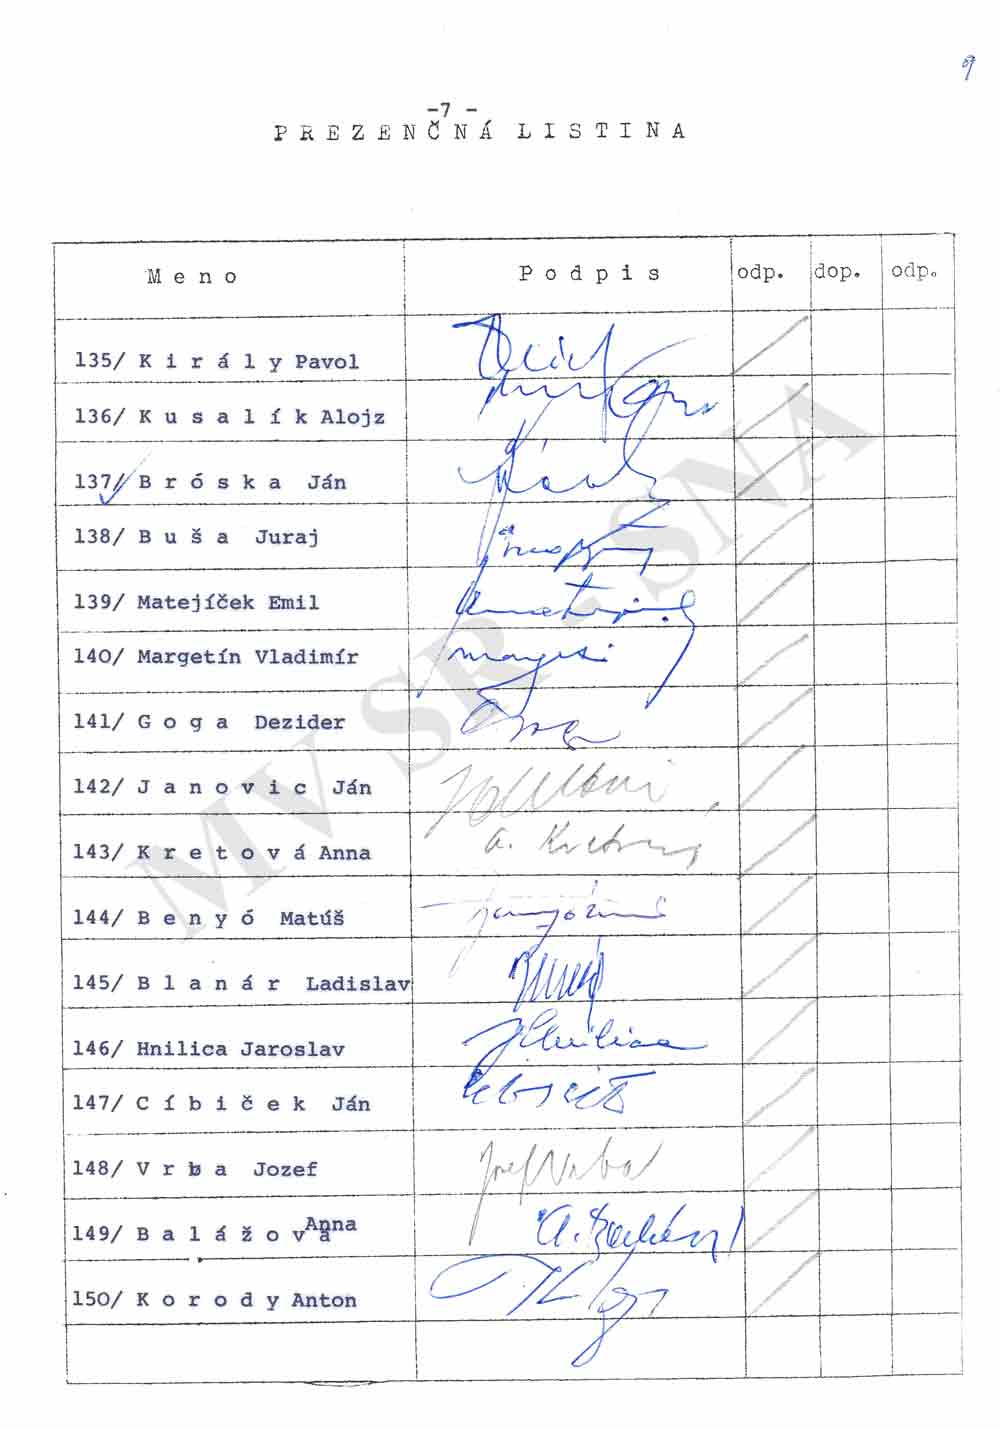 9
-7 -
P R E Z E N Č N Á L I S T I N A
M e n o P o d p i s odp. dop. odp.
135/ K i r á l y Pavol
136/ K u s a l í k Alojz
137/ B r ó s k a Ján
138/ B u š a Juraj
139/ Matejíček Emil
140/ Margetín Vladimír
141/ G o g a Dezider
142/ J a n o v i c Ján
143/ K r e t o v á Anna A. Kretová
144/ B e n y ó Matúš
145/ B l a n á r Ladislav
146/ Hnilica Jaroslav JHnilica
147/ C í b i č e k Ján
148/ V r b a Jozef Jozef Vrba
149/ B a l á ž o v á Anna
150/ K o r o d y Anton
MV SR - SNA